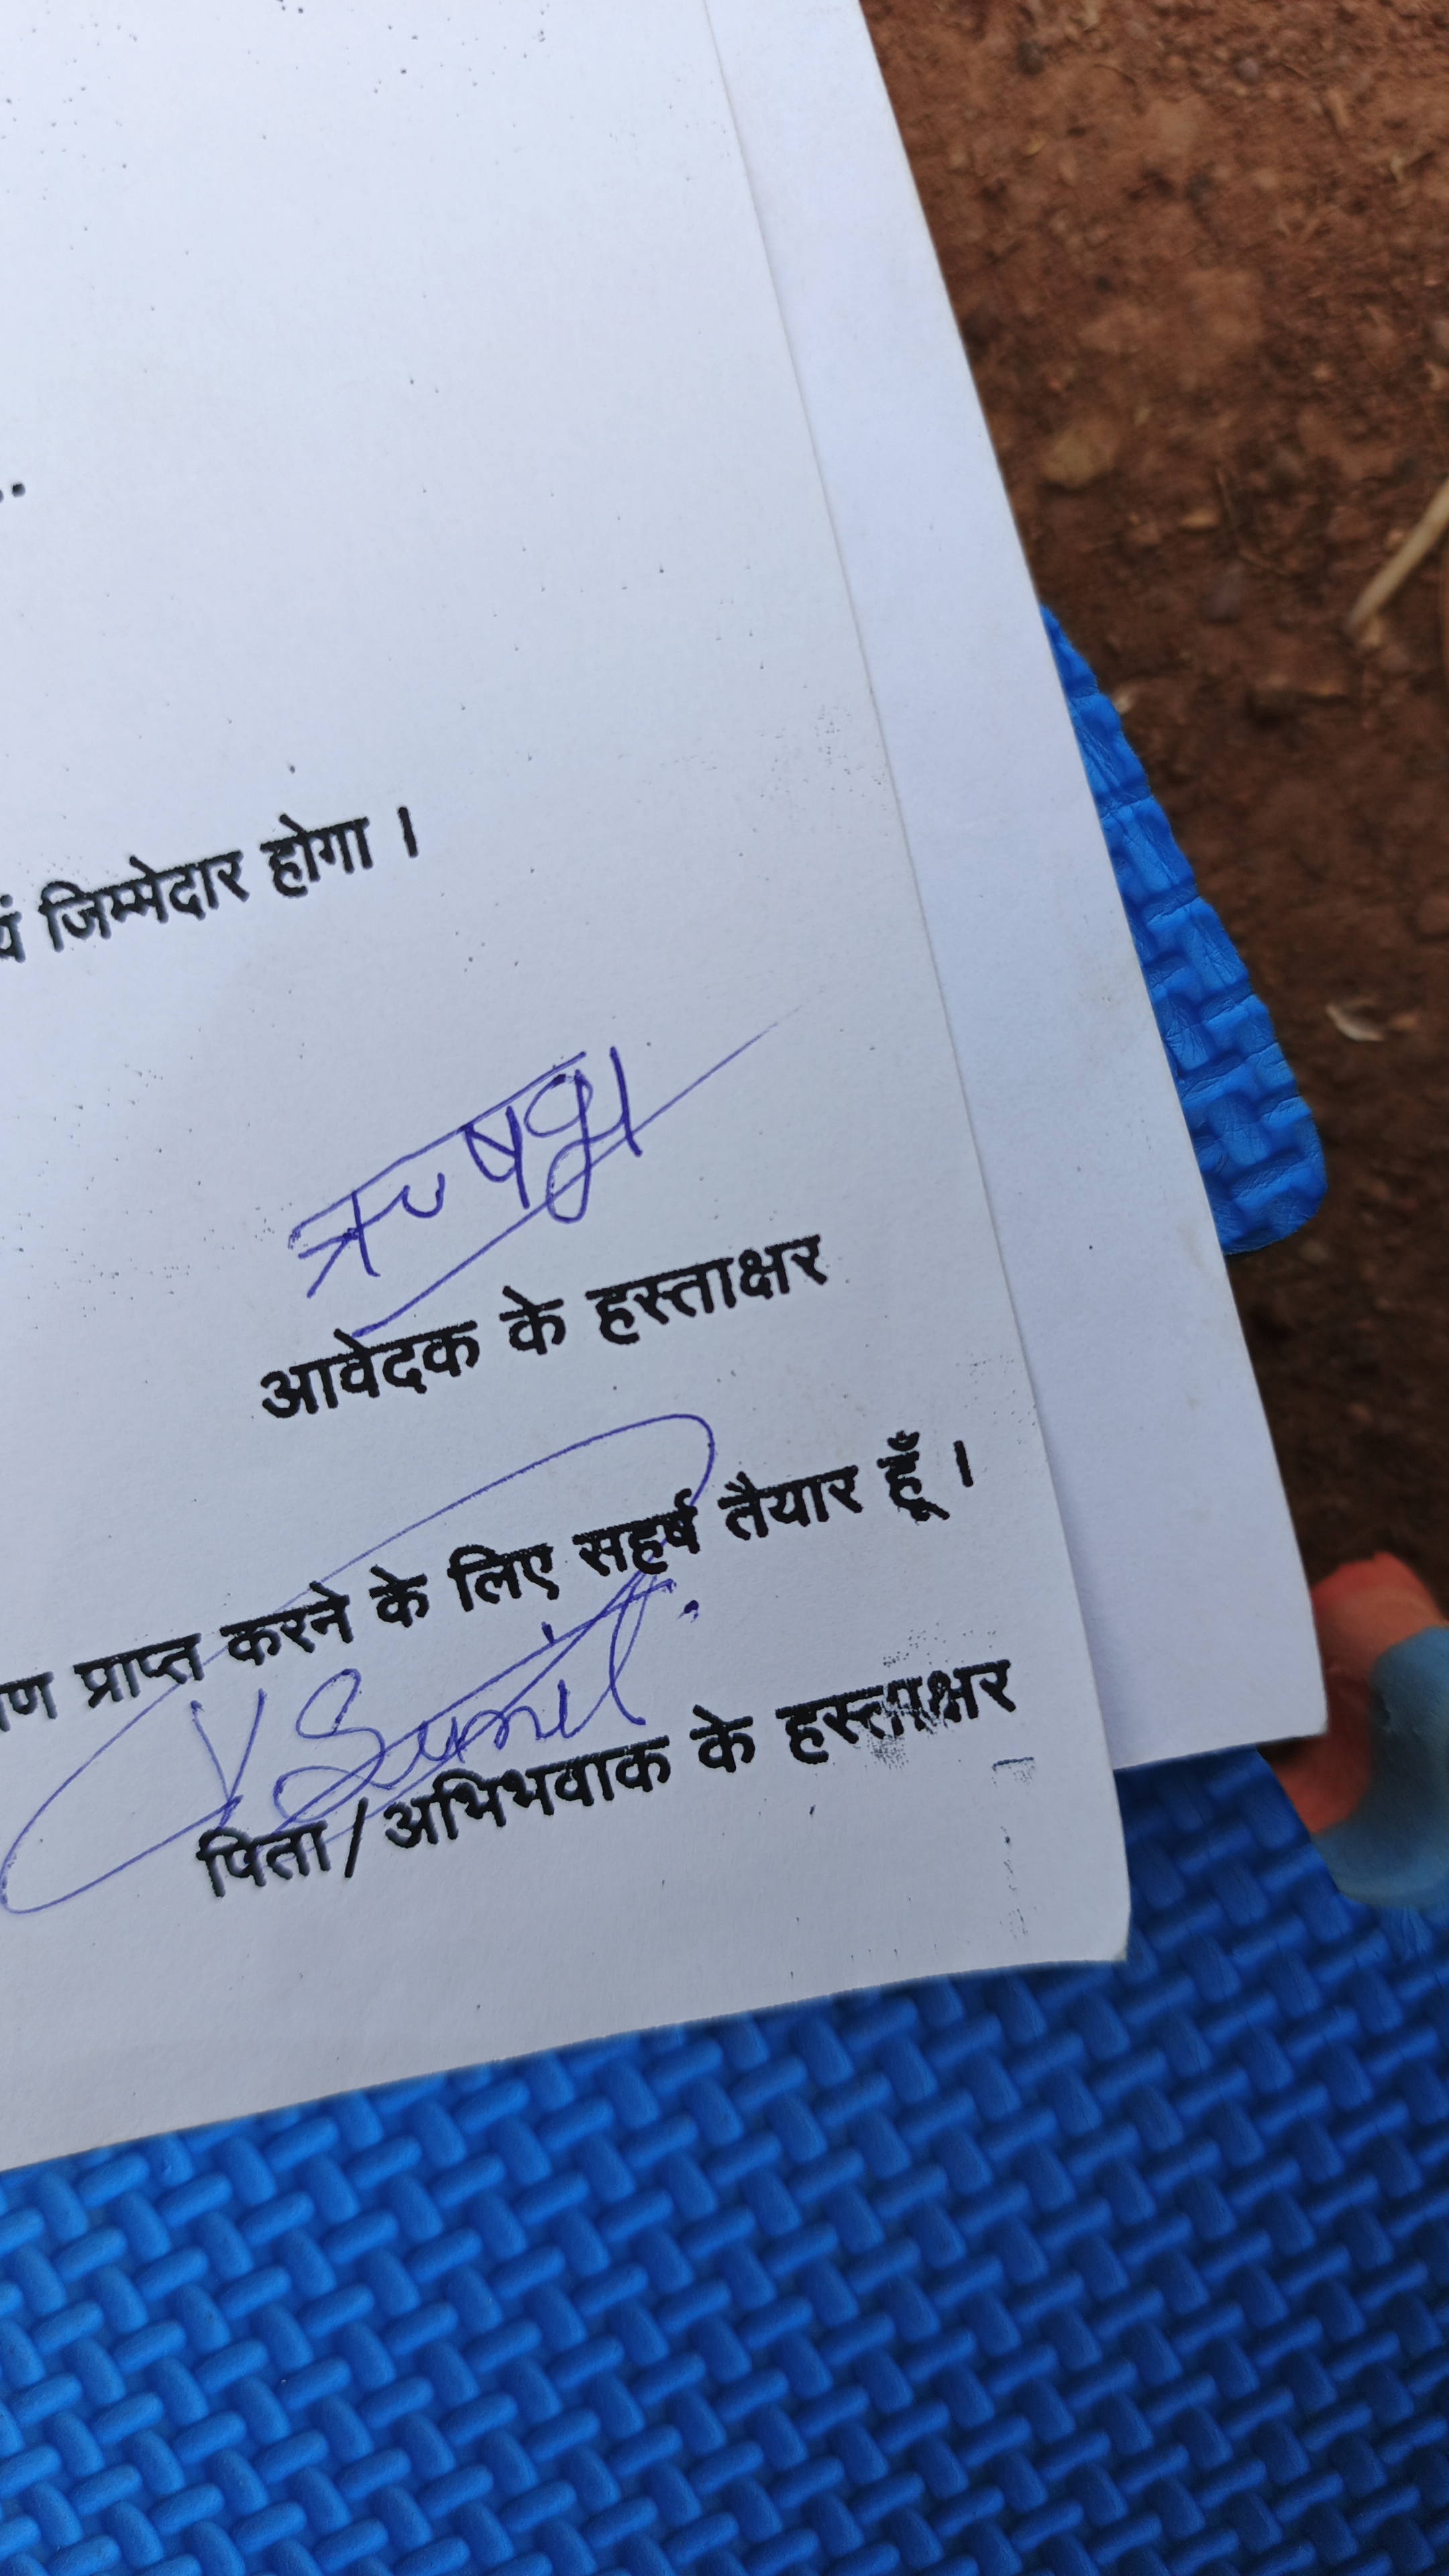 ..
जिम्मेदार होगा ।
ऋषभ
आवेदक के हस्ताक्षर
प्राप्त करने के लिए सहर्ष तैयार हूँ ।
Sunil
पिता/अभिभवाक के हस्ताक्षर